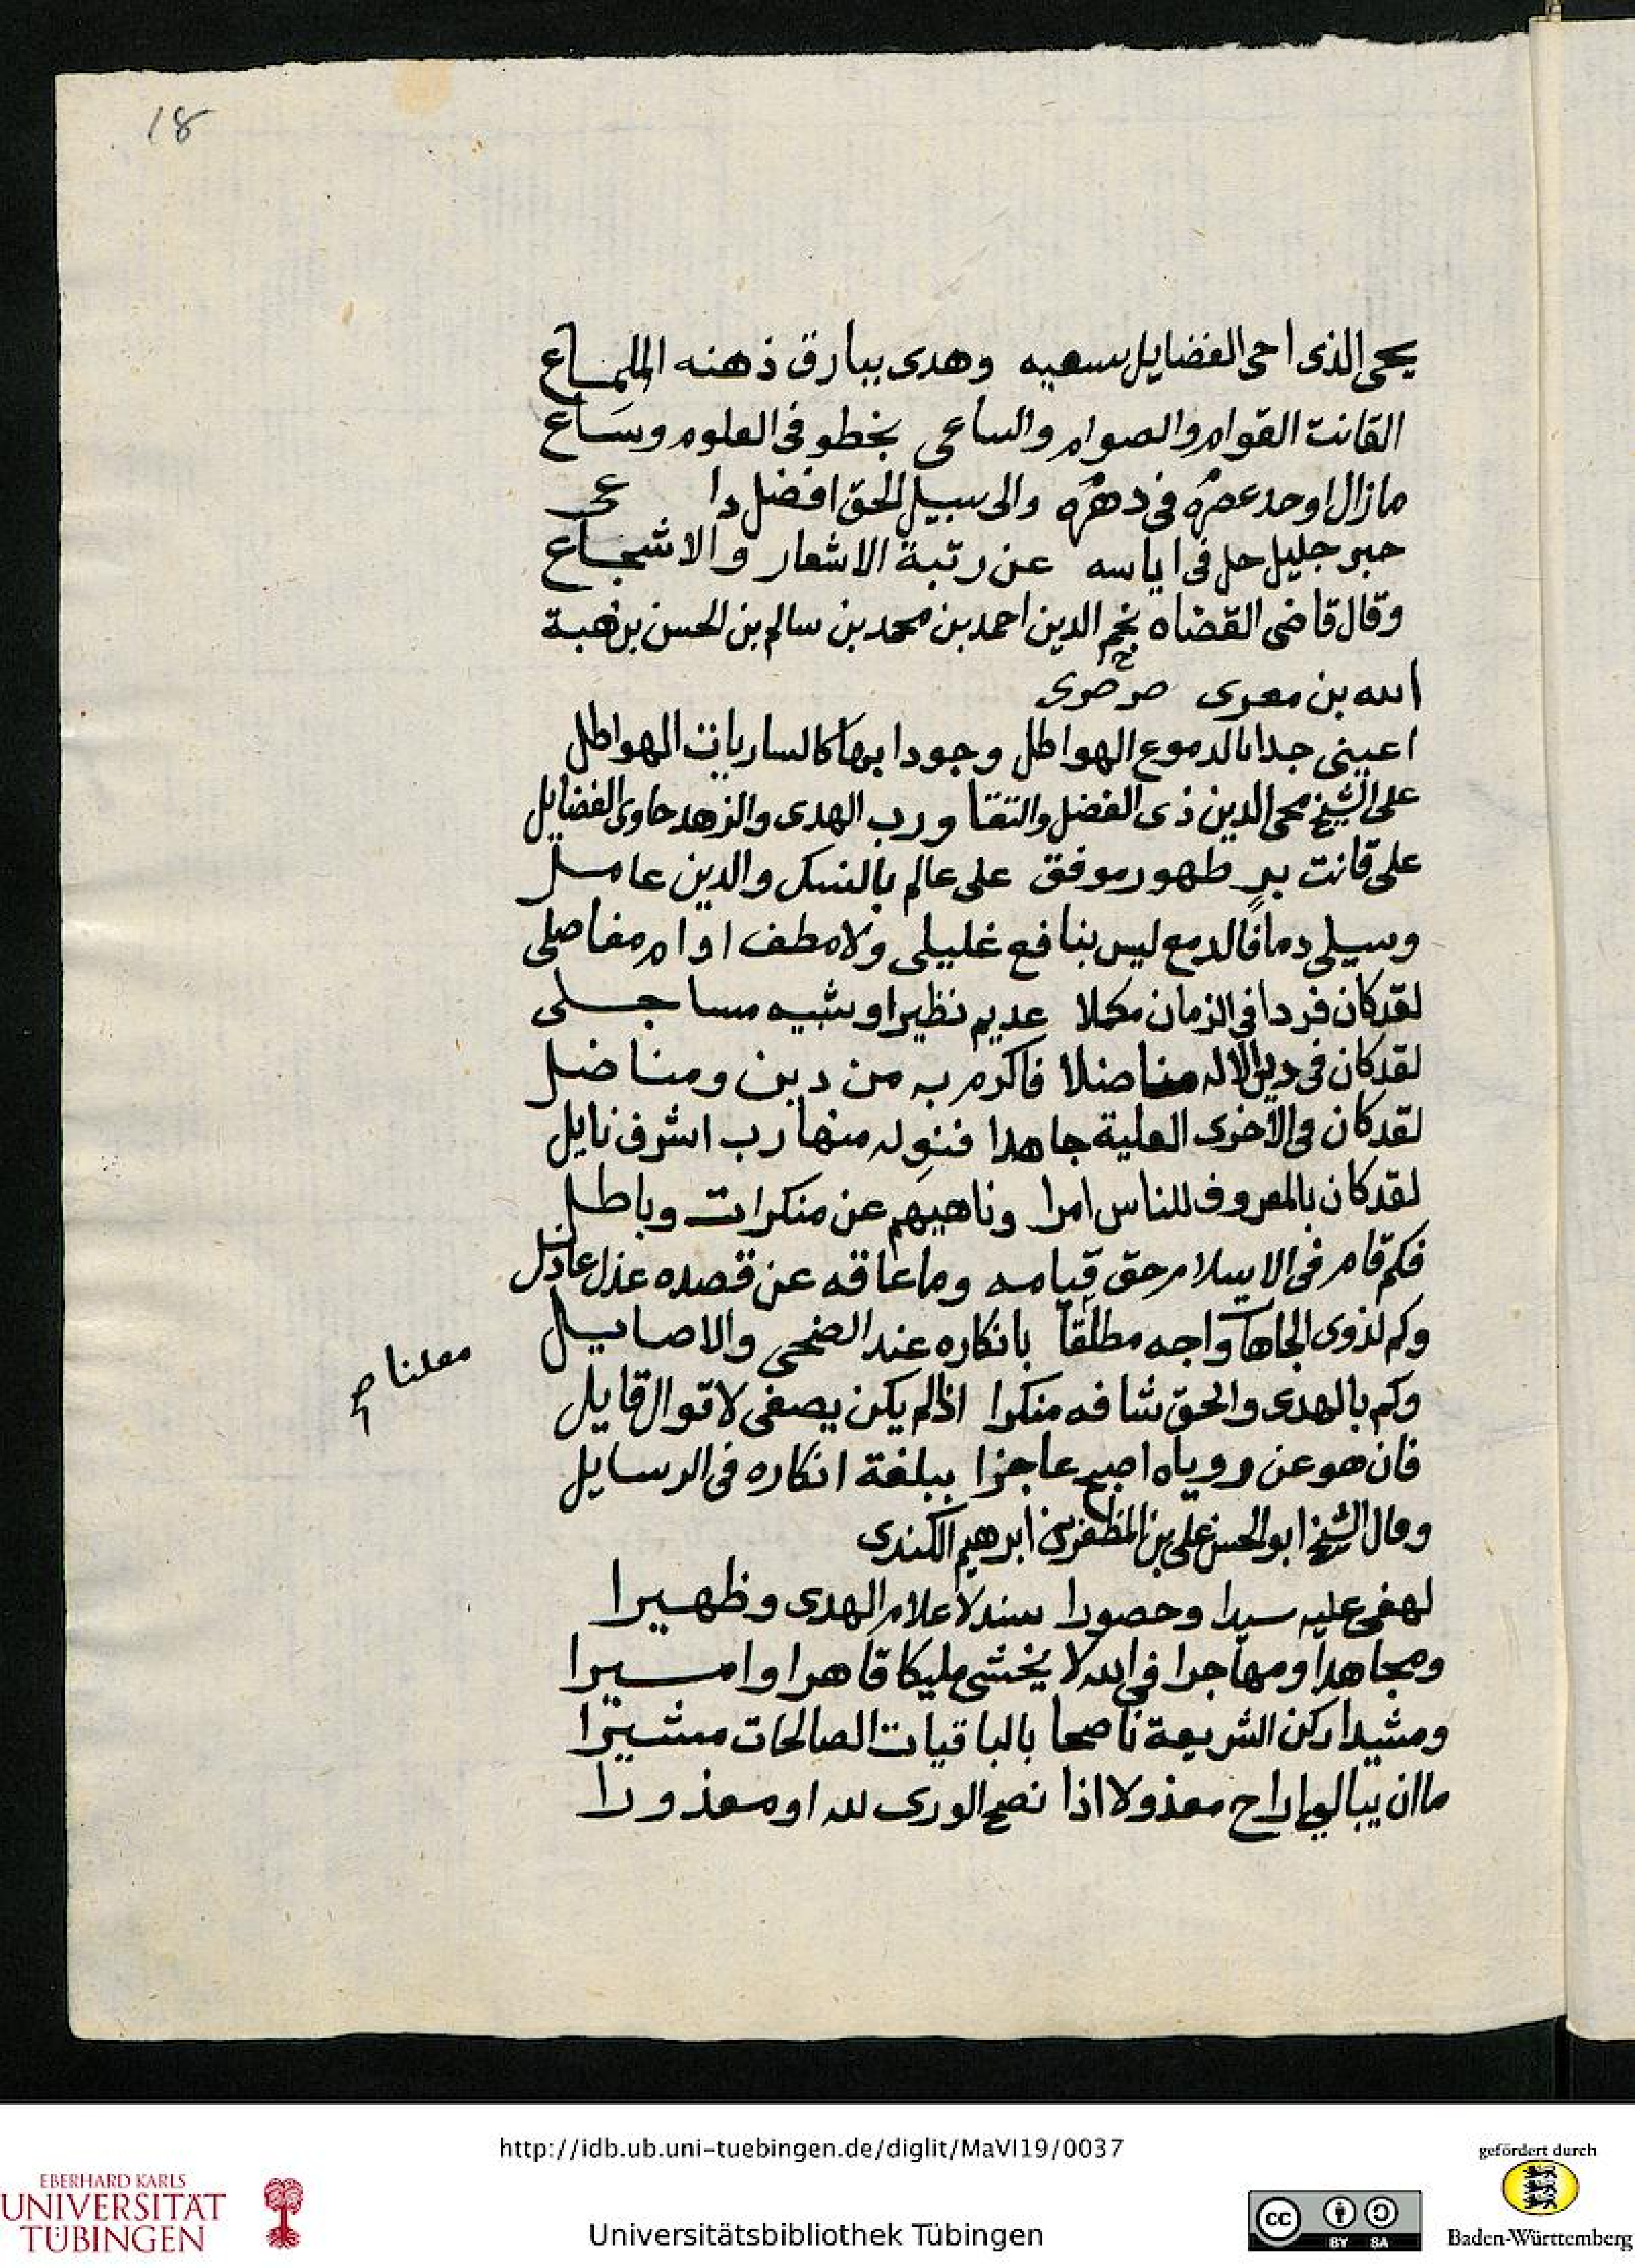 18
يحيى الذى احى الفضايل بسعيه وهدى ببارق ذهنه اللماع
القانت القوام والصوام والساعى بخطو فى العلوم وساع
مازال اوحد عصره فى دهره والى سبيل الحق افضل داعى
حبر جليل حل فى اياسه عن رتبة الاشعار والاشجاع
وقال قاضى القضاه نجم الدين احمد بن محمد بن سالم بن الحسن بن هبة
الله بن معرى صرصرى
اعينى جدا بالدموع الهواطل وجودا بها كالساريات الهواطل
على الشيخ محى الدين ذى الفضل والتقا ورب الهدى والزهد حاوى الفضايل
على قانت بر طهور موفق على عالم بالنسك والدين عامل
وسيلى دما فالدمع ليس بنافع غليلى ولا مطف اوام مفاصلى
لقد كان فردا فى الزمان مكملا عديم نظير او شبيه مساجلى
لقد كان فى دين الاله مناضلا فاكرم به من دين ومناضل
لقد كان فى الاخرى العلية جاهدا فنوله منها رب اشرف نايل
لقد كان بالمعروف للناس امرا وناهيهم عن منكرات وباطل
فكم قام فى الاسلام حق قيامه وما عاقه عن قصده عذل عاذل
وكم لذوى الجاهات واجه مطلقا بانكاره عند الضحى والاصايل
معلنا صح
وكم بالهدى والحق شافه منكرا اذا لم يكن يصغى لاقوال قايل
فان هو عن روياه اصبح عاجزا ببلغة انكاره فى الرسايل
وقال الشيخ ابو الحسن على بن المظفر بن ابرهيم الكندى
لهفى عليه سيدا وحصورا سندا لاعلام الهدى وظهيرا
ومجاهدا ومهاجرا فى الله لا يخشى مليكا قاهرا وامسيرا
ومشيدا ركن الشريعة ناصحا بالباقيات الصالحات مشيرا
ما ان يبالى راح معذولا اذا نصح الورى لله او معذورا
http://idb.ub.uni-tuebingen.de/diglit/MaVI19/0037
gefördert durch
EBERHARD KARLS
UNIVERSITÄT
TÜBINGEN
Universitätsbibliothek Tübingen
cc BY SA
Baden-Württemberg